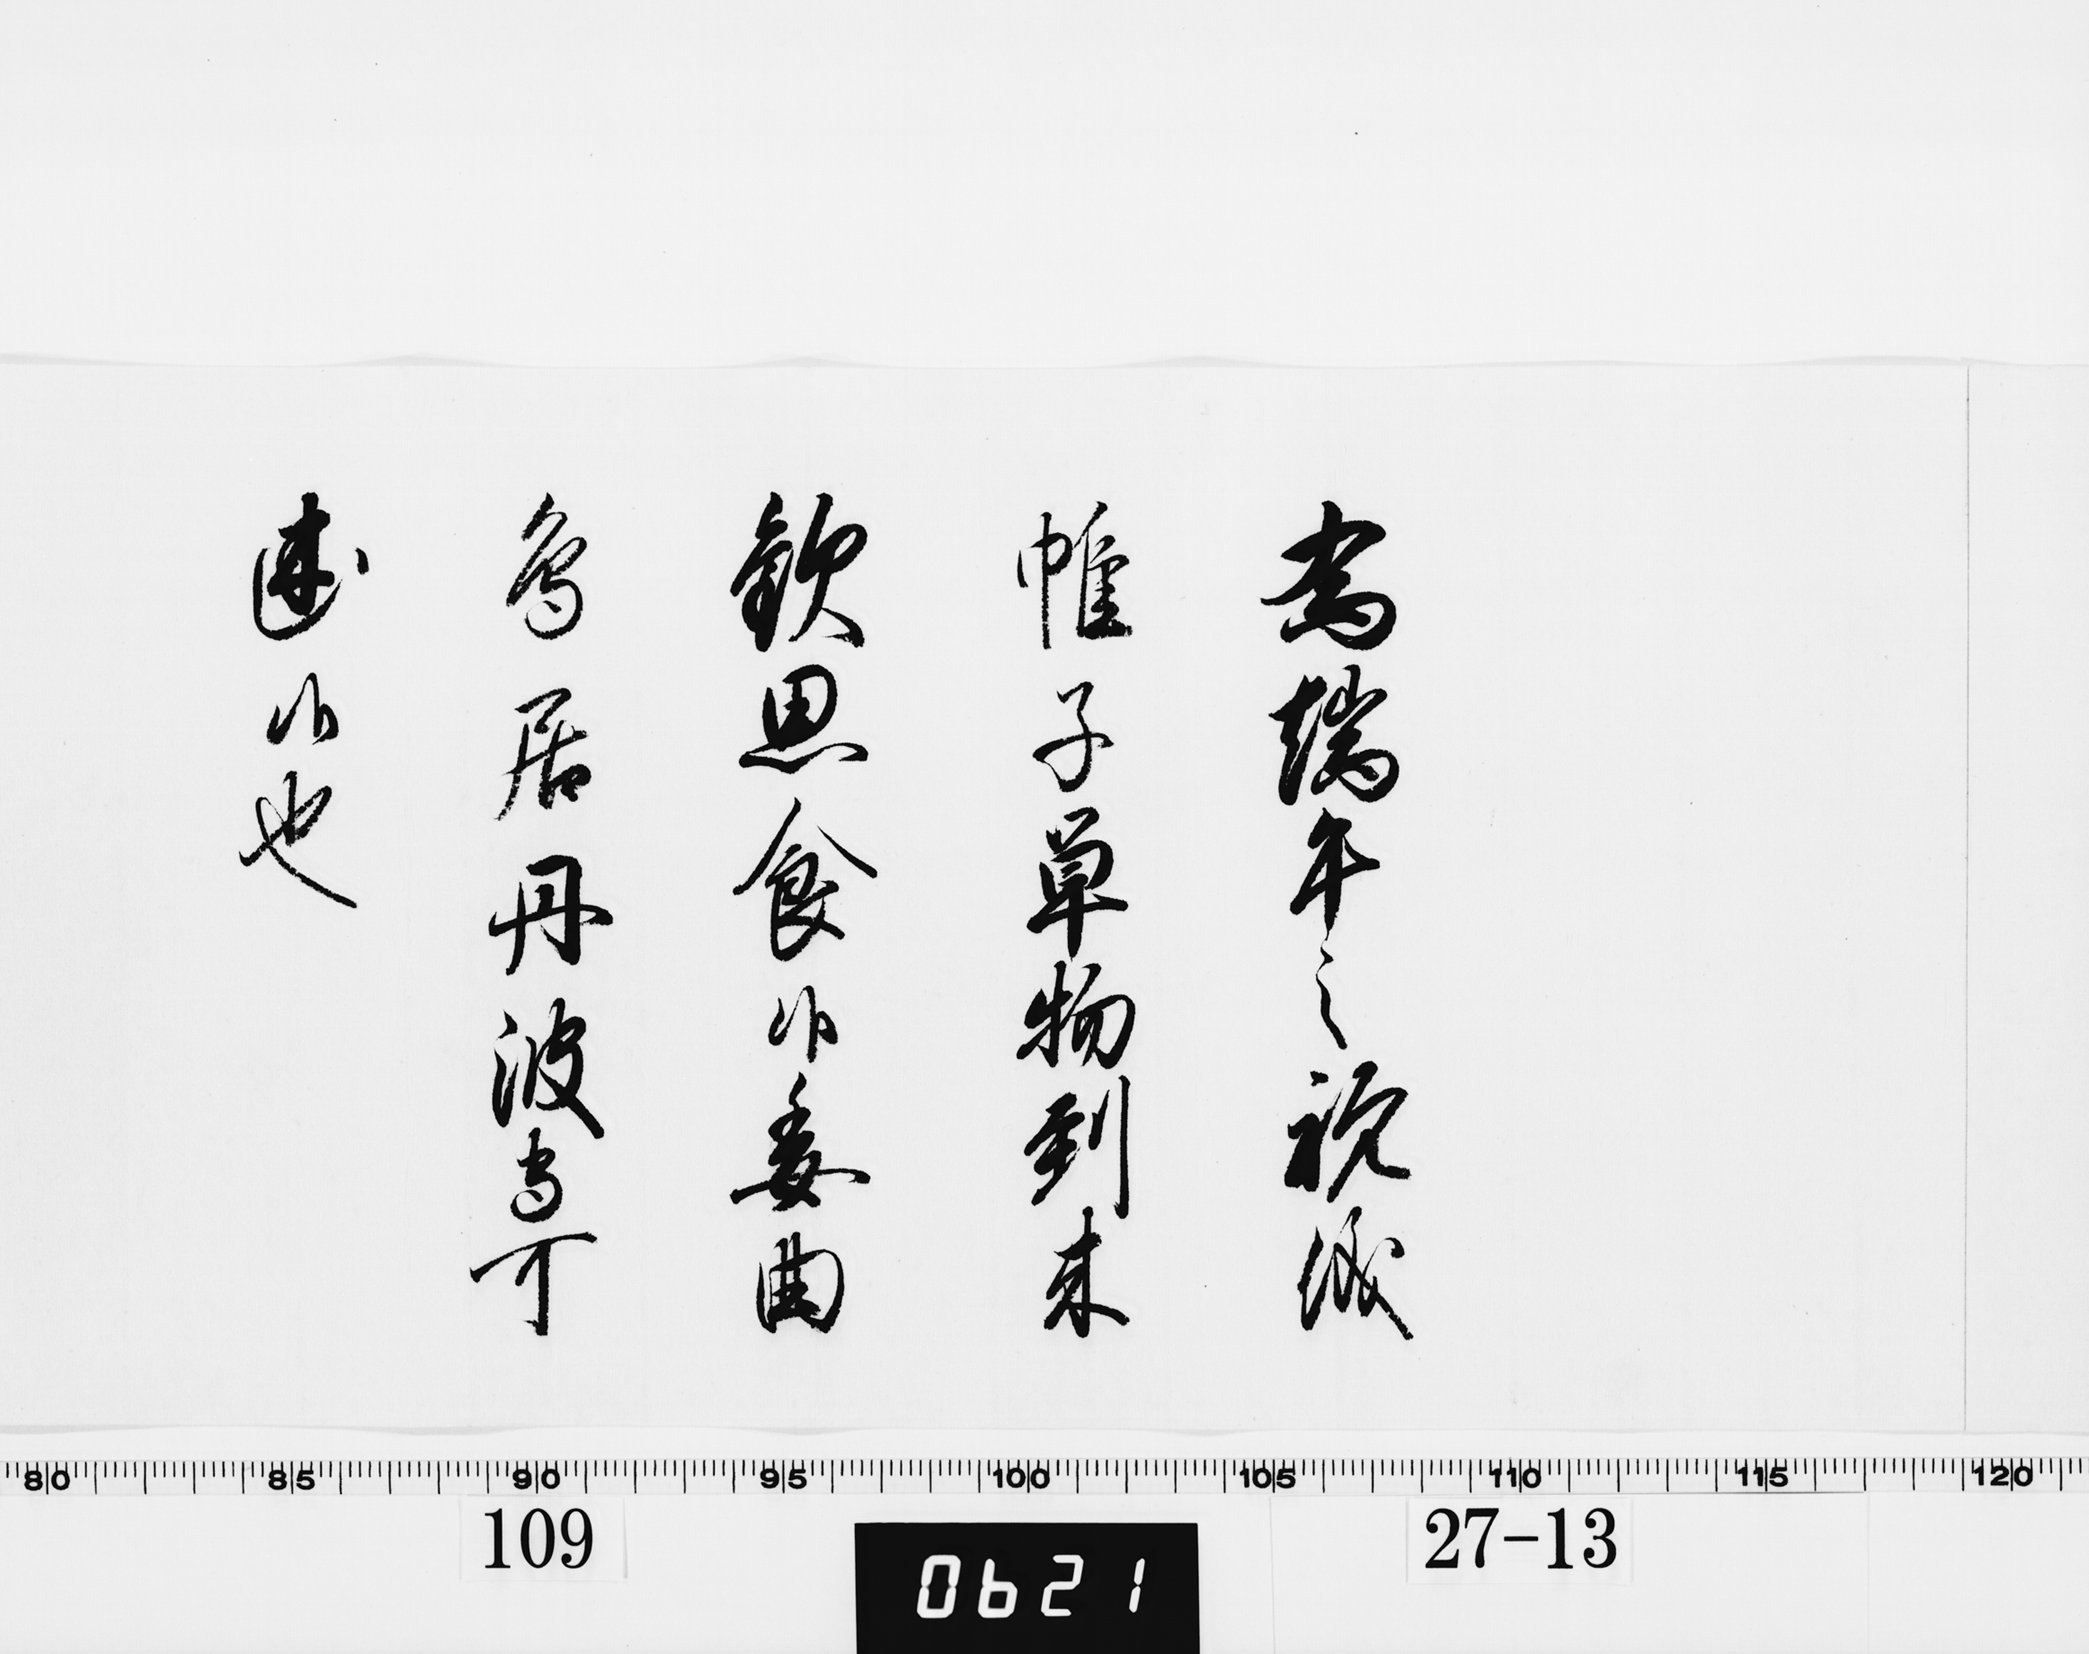 為端午之祝儀
帷子単物到来
欽思食候委曲
鳥居丹波守可
述候也
80 85 90 95 100 105 110 115 120
109
0621
27-13